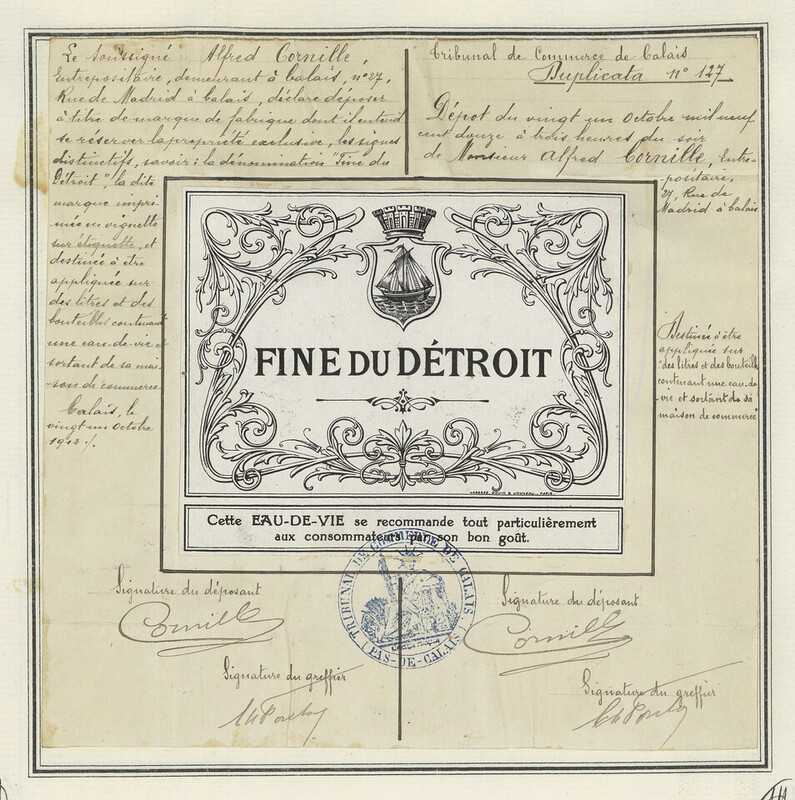 Le soussigné Alfred Cornille,
Entrepositaire, demeurant à Calais, n° 27,
Rue de Madrid à Calais, déclare déposer
à titre de marque de fabrique dont il entend
se réserver la propriété exclusive, les signes
distinctifs, savoir : la dénomination "Fine du
Détroit", la dite
marque impri-
-mée en vignette
sur étiquette, et
destinée à être
appliquée sur
des litres et des
bouteilles contenant
une eau-de-vie et
sortant de sa mai-
-son de commerce
Calais, le
vingt un Octobre
1912 ./.
Tribunal de Commerce de Calais
Duplicata n° 127
Dépot du vingt un Octobre mil neuf
cent douze à trois heures du soir
de Monsieur Alfred Cornille, Entre-
-positaire,
27, Rue de
Madrid à Calais
Destinée à être
appliquée sur
des litres et des bouteilles
contenant une eau-de-
vie et sortant de sa
maison de commerce
FINE DU DÉTROIT
Cette EAU-DE-VIE se recommande tout particulièrement
aux consommateurs par son bon goût.
TRIBUNAL DE COMMERCE DE CALAIS
(PAS-DE-CALAIS)
Signature du déposant
Cornille
Signature du greffier
Signature du déposant
Cornille
Signature du greffier